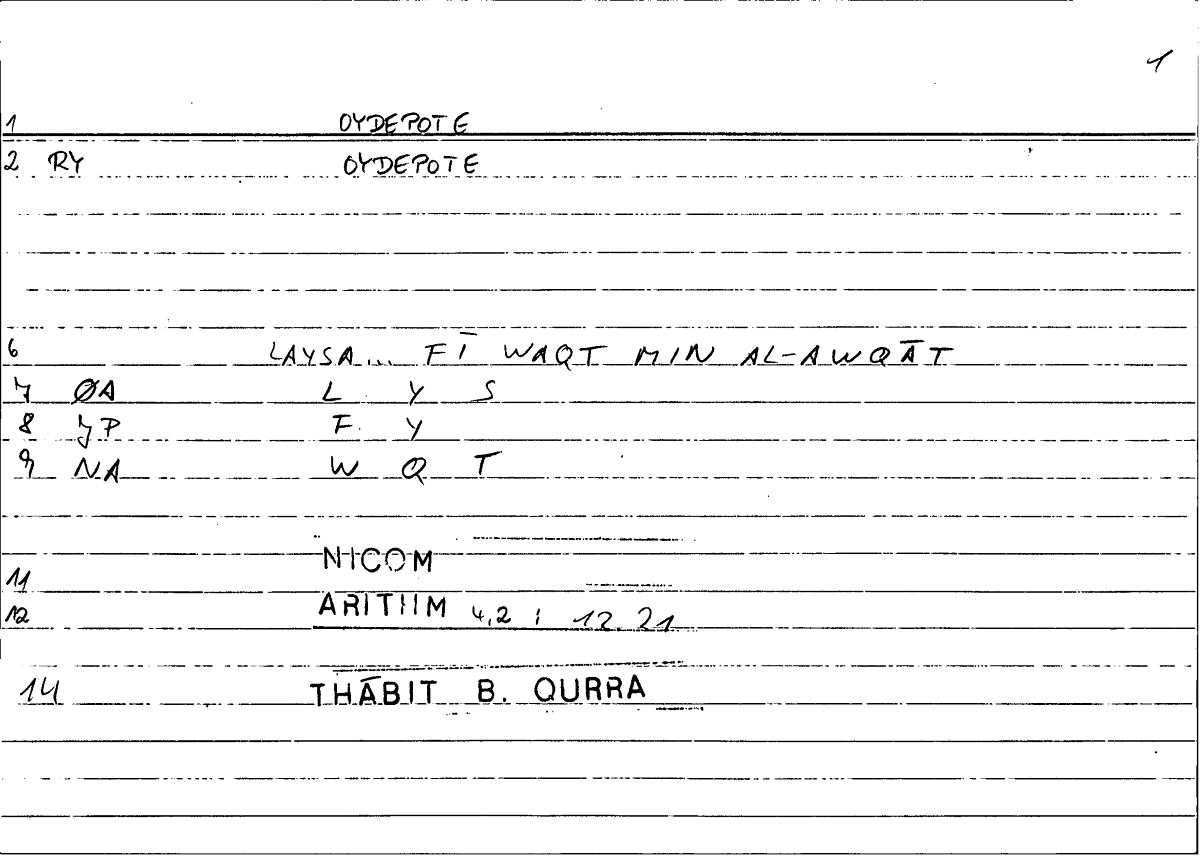 1
1 OYDEPOTE
2 RY OYDEPOTE
6 LAYSA... FĪ WAQT MIN AL-AWQĀT
7 ØA L Y S
8 JP F Y
9 NA W Q T
11 NICOM
12 ARITIIM 4,2 ; 12.21
14 THĀBIT B. QURRA